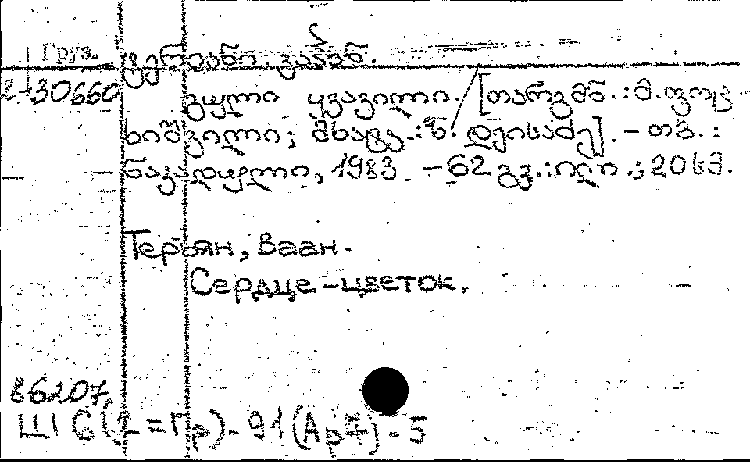 Груз.
ტერიანი ვაჰან.
2-30660
გული ყვავილი. [თარგმნ.: მ. ფოც-
ხიშვილი; მხატვ.: ზ. დეისაძე]. – თბ.:
ნაკადული, 1983. – 62 გვ.: ილ.; 20სმ.
Терьян, Ваан.
Сердце-цветок.
86207
Ш6(2=Гр)-91(Ар7)-5